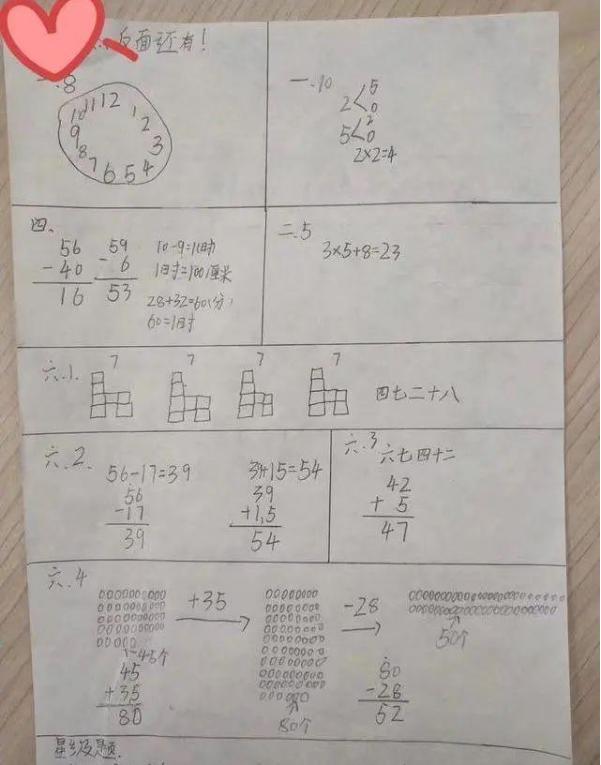 反面还有!
一.8
11 12 1
10 2
9 3
8 4
7 6 5
一.10
2< 5 0
5< 2 0
2×2=4
四、
56
-40
16
59
- 6
53
10-9=1(时)
1时=100厘米
28+32=60(分)
60=1时
二.5
3×5+8=23
六.1.
7 7 7 7
四七二十八
六.2.
56-17=39
56
-17
39
39+15=54
39
+1,5
54
六.3
六七四十二
42
+ 5
47
六.4
+35
-28
45个
45
+35
80
80个
50个
80
-28
52
星级题